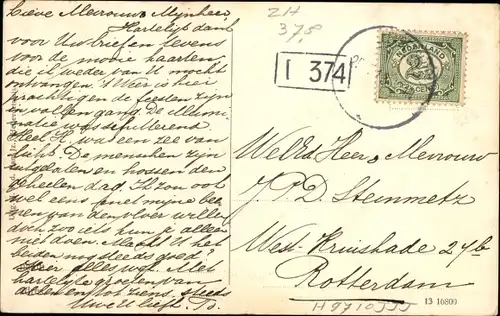 Lieve Mevrouw, Mijnheer,
Hartelijk dank
voor Uw brief en tevens
voor de mooie kaarten
die ik weder van U mocht
ontvangen. 't Weer is hier
prachtig en de feesten zijn
in vollen gang. De illumi-
natie is schitterend
Heel R. was een zee van
licht. De menschen zijn
uitgelaten en hossen den
geheelen dag. Ik zou ook
wel eens met mijne
van den willen
doch zoo iets kun je alleen
niet doen. Maakt U het
beiden nog steeds goed?
Hier alles wel. Met
hartelijke groeten van
allen en tot ziens, steeds
Uwe liefh.
2H
37,5
I 374
NEDERLAND
2½
CENT
WelEd Heer & Mevrouw
J. P. D. Steinmetz
West-Kruiskade 27b
Rotterdam
H9710JJJ
13 10800